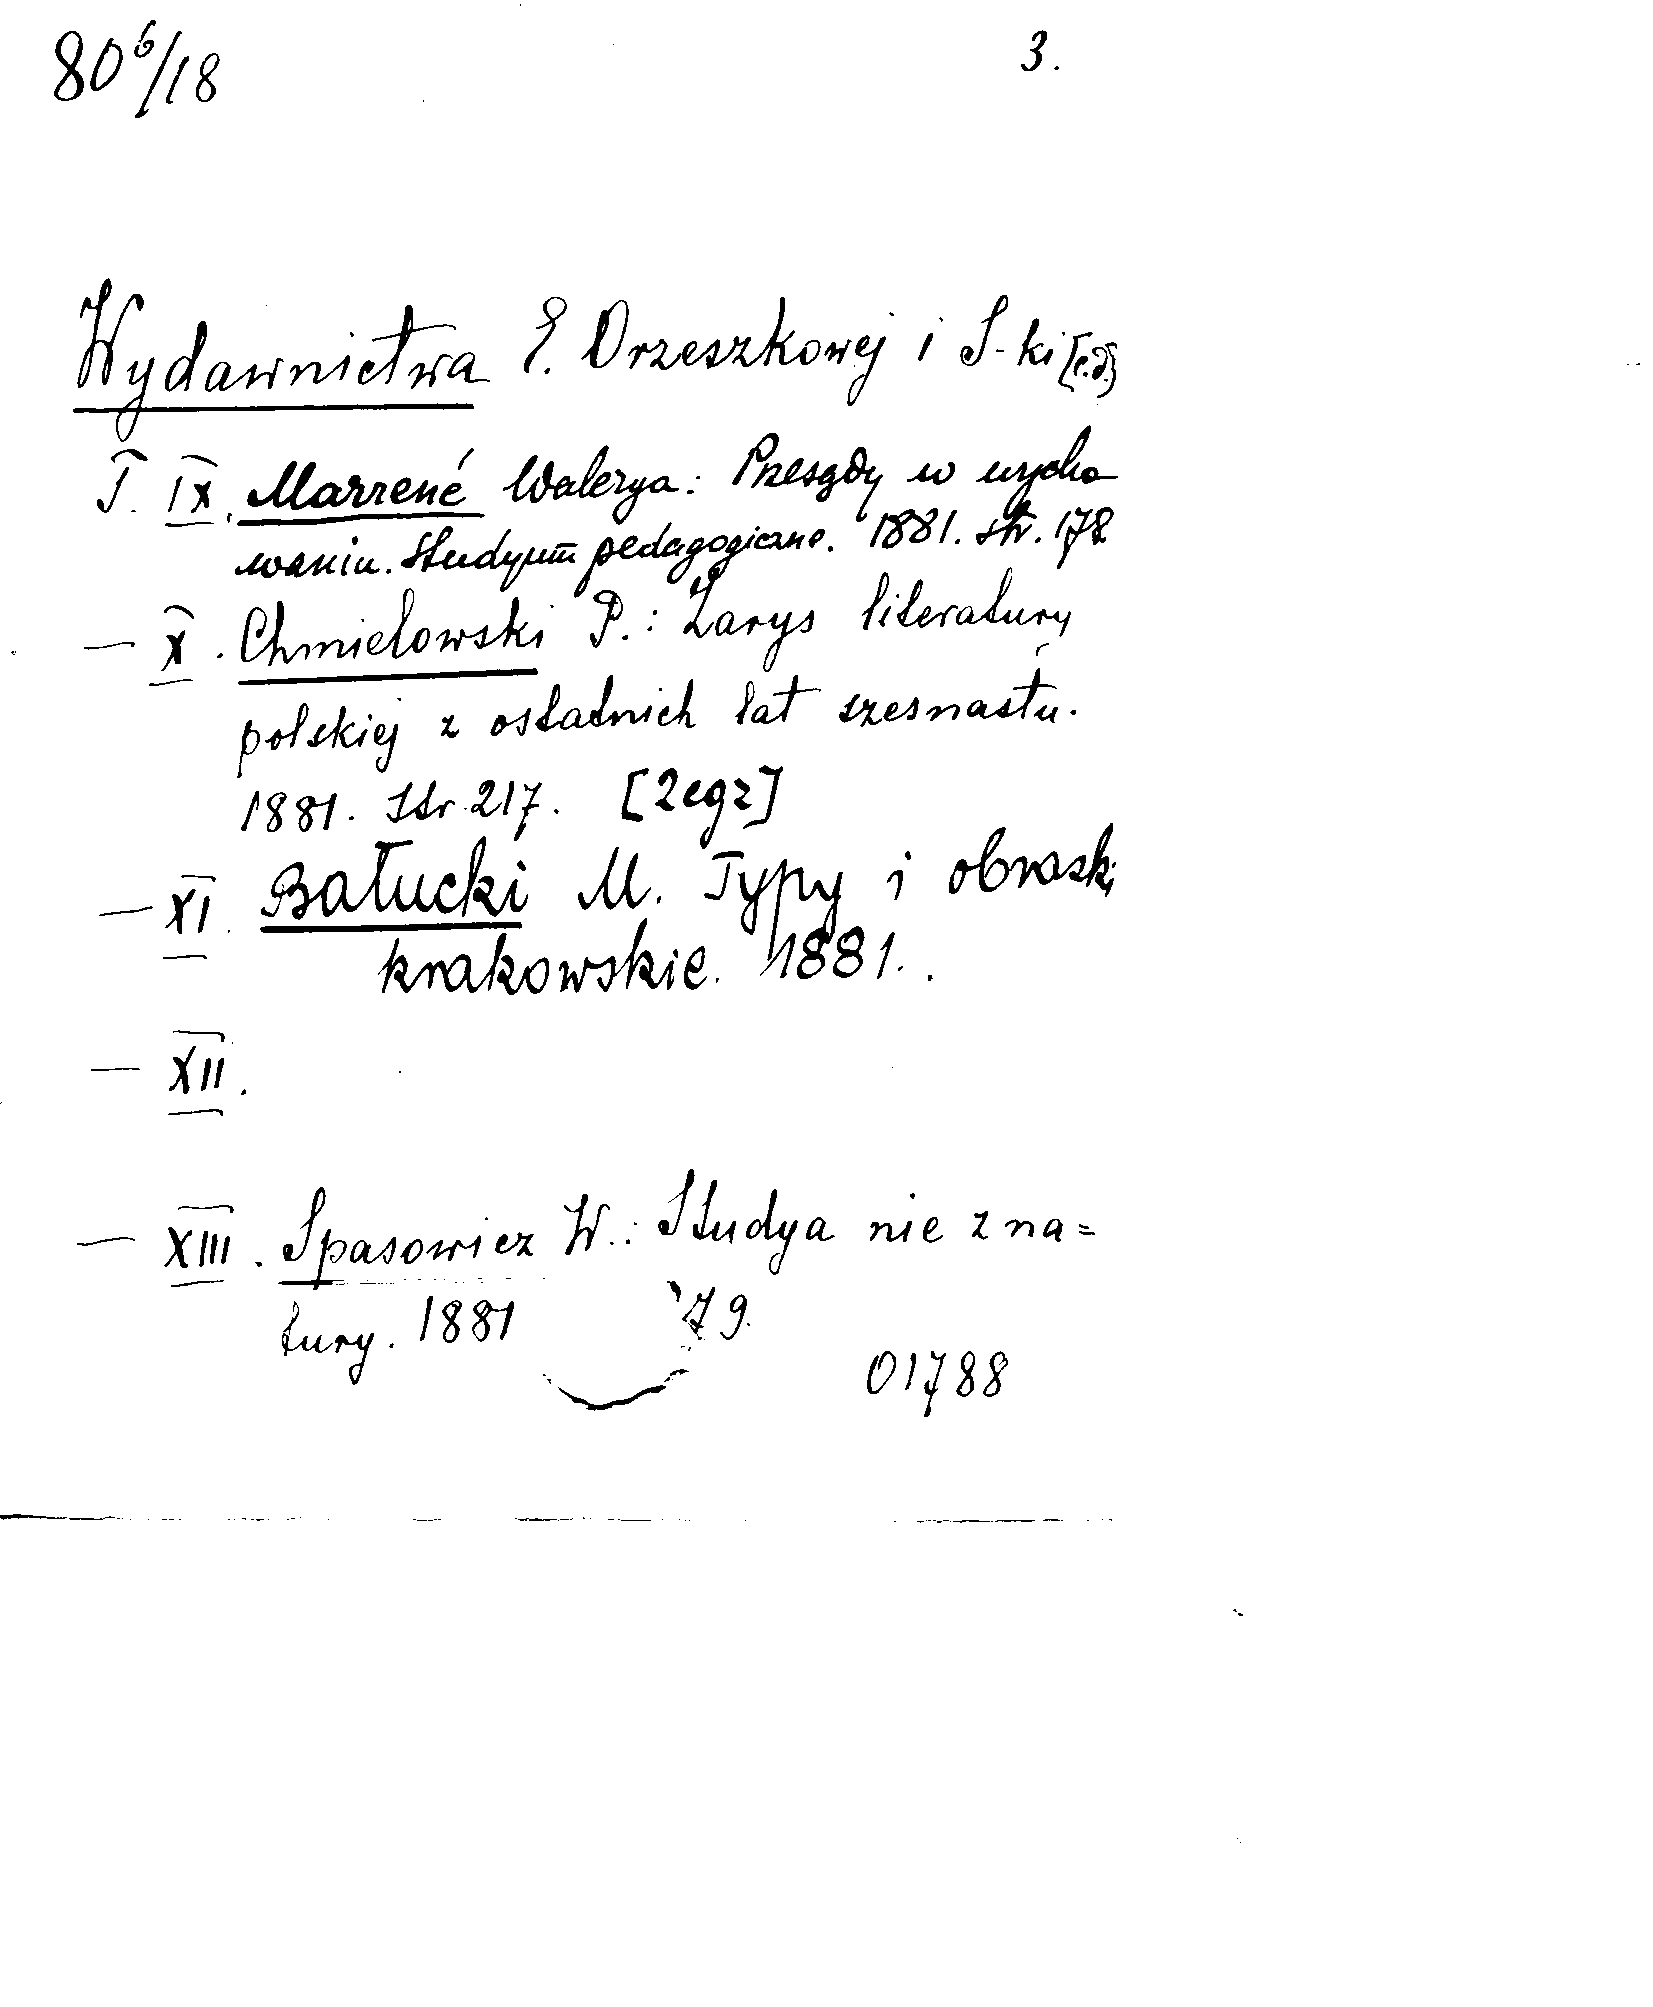 80⁶/18
3.
Wydawnictwa E. Orzeszkowej i S-ki [c.d.]
T. IX. Marrené Walerya: Przesądy w wycho
waniu. Studyum pedagogiczne. 1881. str. 178
— X. Chmielowski P.: Zarys literatury
polskiej z ostatnich lat szesnastu.
1881. Str. 217. [2egz]
— XI. Bałucki M. Typy i obrazki
krakowskie. 1881.
— XII.
— XIII. Spasowicz W.: Studya nie z na=
tury. 1881
79.
01788